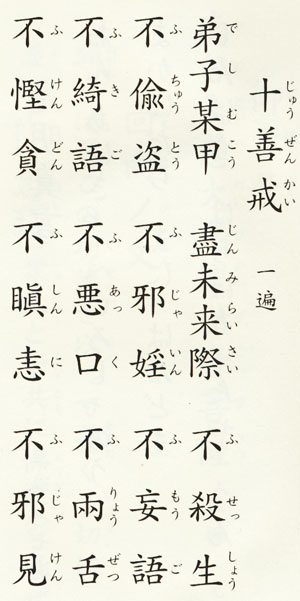 十善戒 一遍
弟子某甲 盡未来際 不殺生
不偸盗 不邪婬 不妄語
不綺語 不悪口 不兩舌
不慳貪 不瞋恚 不邪見
じゅうぜんかい
でしむこう じんみらいさい ふせっしょう
ふちゅうとう ふじゃいん ふもうご
ふきご ふあっく ふりょうぜつ
ふけんどん ふしんに ふじゃけん